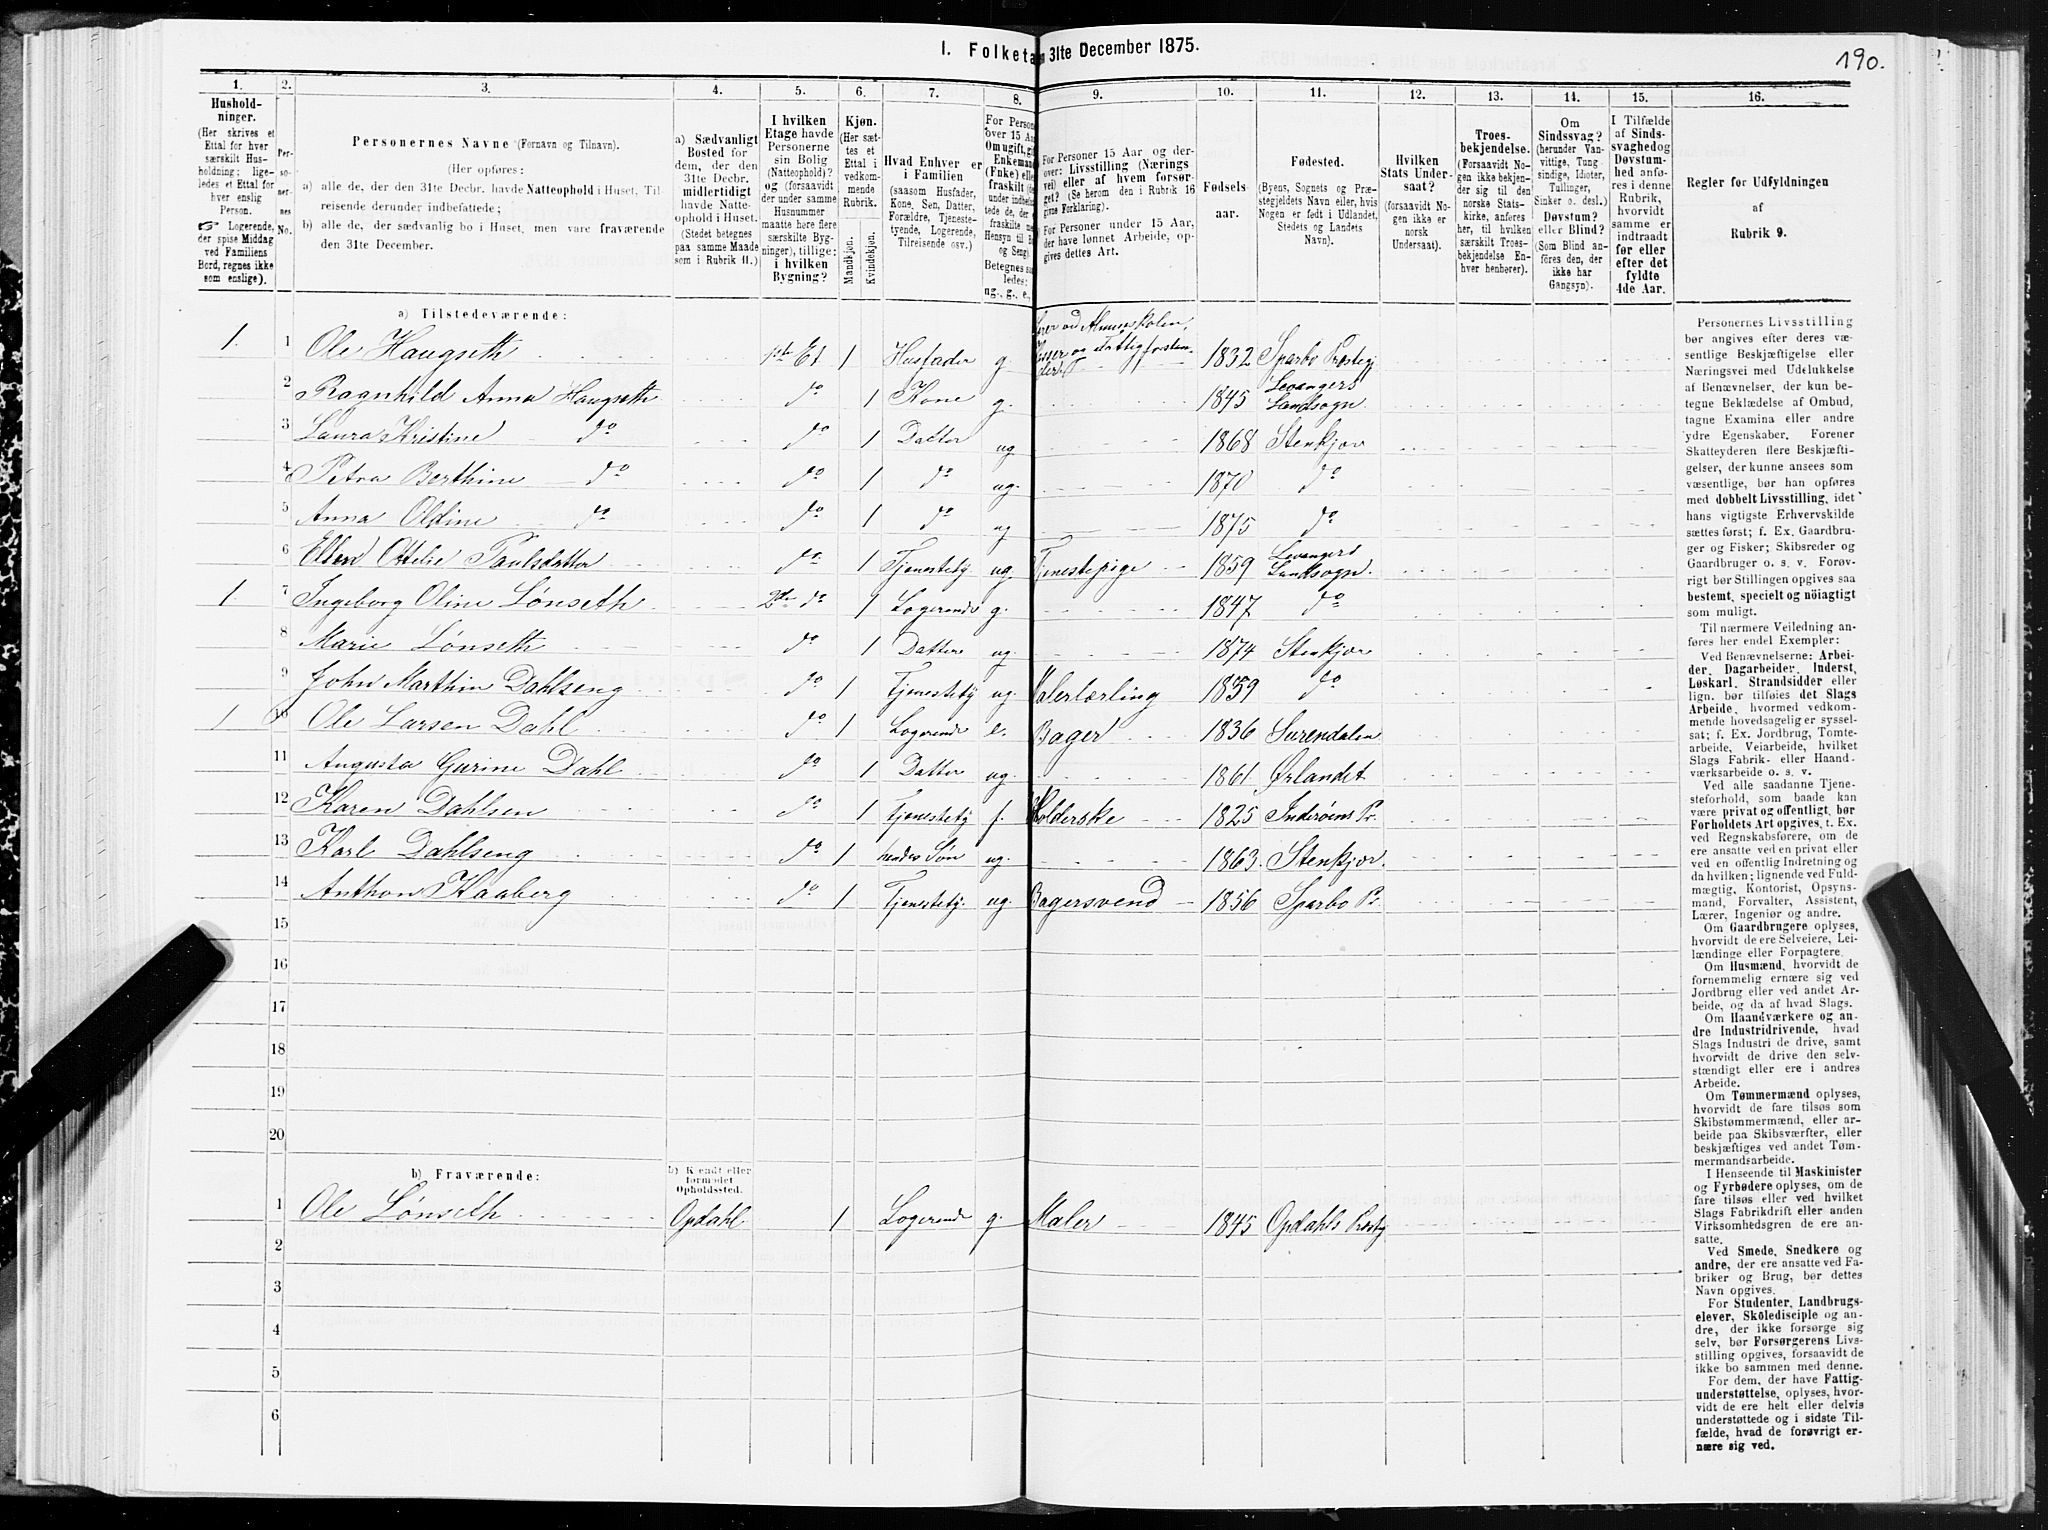 I. Folketa
n 31te December 1875.
190.
1.
2.
3.
4.
5.
6.
7.
8.
9.
10.
11.
12.
13.
14.
15.
16.
Hushold-
ninger.
(Her skrives et
Ettal for hver
særskilt Hus-
holdning; lige-
ledes et Ettal for
hver enslig
Person.
Logerende,
der spise Middag
ved Familiens
Bord, regnes ikke
som enslige).
Per-
so-
ner-
nes
No.
Personernes Navne (Fornavn og Tilnavn).
(Her opføres:
a) alle de, der den 31te Decbr. havde Natteophold i Huset, Til-
reisende derunder indbefattede;
b) alle de, der sædvanlig bo i Huset, men vare fraværende
den 31te December.
a) Sædvanligt
Bosted for
dem, der den
31te Decbr.
midlertidigt
havde Natte-
ophold i Huset.
(Stedet betegnes
paa samme Maade
som i Rubrik 11.)
I hvilken
Etage havde
Personerne
sin Bolig
(Natteophold)?
og (forsaavidt
der under samme
Husnummer
maatte høre flere
særskilte Byg-
ninger), tillige:
i hvilken
Bygning?
Kjøn.
(Her sæt-
tes et
Ettal i
vedkom-
mende
Rubrik.
Mandkjøn.
Kvindekjøn.
Hvad Enhver er
i Familien
(saasom Husfader,
Kone, Søn, Datter,
Forældre, Tjeneste-
tyende, Logerende,
Tilreisende osv.)
For Person
over 15 Aa
Om ugift, gif
Enkemand
(Enke) elle
fraskilt
Hensyn til B
og Seng).
Betegnes saa
ledes:
ug., g., e.,
For Personer 15 Aar og der-
over: Livsstilling (Nærings
vei) eller af hvem forsør-
get? (Se herom den i Rubrik 16
givne Forklaring).
For Personer under 15 Aar,
der have lønnet Arbeide, op-
gives dettes Art.
Fødsels-
aar.
Fødested.
(Byens, Sognets og Præ-
stegjeldets Navn eller, hvis
Nogen er født i Udlandet,
Stedets og Landets
Navn).
Hvilken
Stats Under-
saat?
(forsaavidt No-
gen ikke er
norsk
Undersaat).
Troes-
bekjendelse.
(Forsaavidt No-
gen ikke bekjen-
der sig til den
norske Stats-
kirke, anføres
her, til hvilken
særskilt Troes-
bekjendelse En-
hver henhører).
Om
Sindssvag?
(herunder Van-
vittige, Tung-
sindige, Idioter,
Tullinger,
Sinker o. desl.)
Døvstum?
eller Blind?
(Som Blind an-
føres den, der
ikke har
Gangsyn).
I Tilfælde
af Sinds-
svaghed og
Døvstum-
hed anfø-
res i denne
Rubrik,
hvorvidt
samme er
indtraadt
før eller
efter det
fyldte
4de Aar.
Regler for Udfyldningen
af
Rubrik 9.
a) Tilstedeværende:
1 1 Ole Haugseth 1ste Et 1 Husfader g. 1832 Sparbo Præstegj
2 Ragnhild Anna Haugseth do 1 Kone g. 1845 Levangers Landsogn.
3 Laura Kristine do do 1 Datter ug 1868 Stenkjær
4 Petra Berthine do do 1 do ug. 1870 do
5 Anna Oldine do do 1 do ug 1875 do
6 Ellen Ottelie Paulsdatter do 1 Tjenestety ug. Tjenestepige 1859 Levangers Landsogn.
1 7 Ingeborg Oline Lønseth 2den do 1 Logerende g. 1847 do
8 Marie Lønseth do 1 Datter ug. 1874 Stenkjær
9 John Marthin Dahlseng do 1 Tjenestety ug. Malerlærling 1859 do
1 10 Ole Larsen Dahl do 1 Logerende e. Bager 1836 Surendalen
11 Augusta Gurine Dahl do 1 Datter ug. 1861 Ørlandet
12 Karen Dahlsen do 1 Tjenestety f. Holderske 1825 Inderøens Pr.
13 Karl Dahlseng do 1 hendes Søn ug. 1863. Stenkjær.
14 Anthon Haaberg do 1 Tjenestety. ug. Bagersvend 1856 Sparbo Pr.
15
16
17
18
19
20
b) Fraværende:
b) Kjendt eller
formodet
Opholdssted.
1 Ole Lønseth Opdahl 1 Logerende g. Maler 1845 Opdahls Præstg
2
3
4
5
6
Personernes Livsstilling
bør angives efter deres væ-
sentlige Beskjæftigelse eller
Næringsvei med Udelukkelse
af Benævnelser, der kun be-
tegne Beklædelse af Ombud,
tagne Examina eller andre
ydre Egenskaber. Forener
Skatteyderen flere Beskjæfti-
gelser, der kunne ansees som
væsentlige, bør han opføres
med dobbelt Livsstilling, idet
hans vigtigste Erhvervskilde
sættes først; f. Ex. Gaardbru-
ger og Fisker; Skibsreder og
Gaardbruger o. s. v. Forøv-
rigt bør Stillingen opgives saa
bestemt, specielt og nöiagtigt
som muligt.
Til nærmere Veiledning an-
føres her endel Exempler:
Ved Benævnelserne: Arbei-
der, Dagarbeider, Inderst,
Løskarl, Strandsidder eller
lign. bør tilføies det Slags
Arbeide, hvormed vedkom-
mende hovedsagelig er syssel-
sat; f. Ex. Jordbrug, Tomte-
arbeide, Veiarbeide, hvilket
Slags Fabrik- eller Haand-
værksarbeide o. s. v.
Ved alle saadanne Tjene-
steforhold, som baade kan
være privat og offentligt, bør
Forholdets Art opgives, t. Ex.
ved Regnskabsførere, om de
ere ansatte ved en privat eller
ved en offentlig Indretning og
da hvilken; lignende ved Fuld-
mægtig, Kontorist, Opsyns-
mand, Forvalter, Assistent,
Lærer, Ingeniør og andre.
Om Gaardbrugere oplyses,
hvorvidt de ere Selveiere, Lei-
lændinge eller Forpagtere.
Om Husmænd, hvorvidt de
fornemmelig ernære sig ved
Jordbrug eller ved andet Ar-
beide, og da af hvad Slags.
Om Haandværkere og an-
dre Industridrivende, hvad
Slags Industri de drive, samt
hvorvidt de drive den selv-
stændigt eller ere i andres
Arbeide.
Om Tømmermænd oplyses,
hvorvidt de fare tilsøs som
Skibstømmermænd, eller ar-
beide paa Skibsværfter, eller
beskjæftiges ved andet Tøm-
mermandsarbeide.
I Henseende til Maskinister
og Fyrbødere oplyses, om de
fare tilsøs eller ved hvilket
Slags Fabrikdrift eller anden
Virksomhedsgren de ere an-
satte.
Ved Smede, Snedkere og
andre, der ere ansatte ved Fa-
briker og Brug, bør dettes
Navn opgives.
For Studenter, Landbrugs-
elever, Skoledisciple og an-
dre, der ikke forsørge sig
selv, bør Forsørgerens Livs-
stilling opgives, forsaavidt de
ikke bo sammen med denne.
For dem, der have Fattig-
understøttelse, oplyses, hvor-
vidt de ere helt eller delvis
understøttede og i sidste Til-
fælde, hvad de forøvrigt er-
nære sig ved.